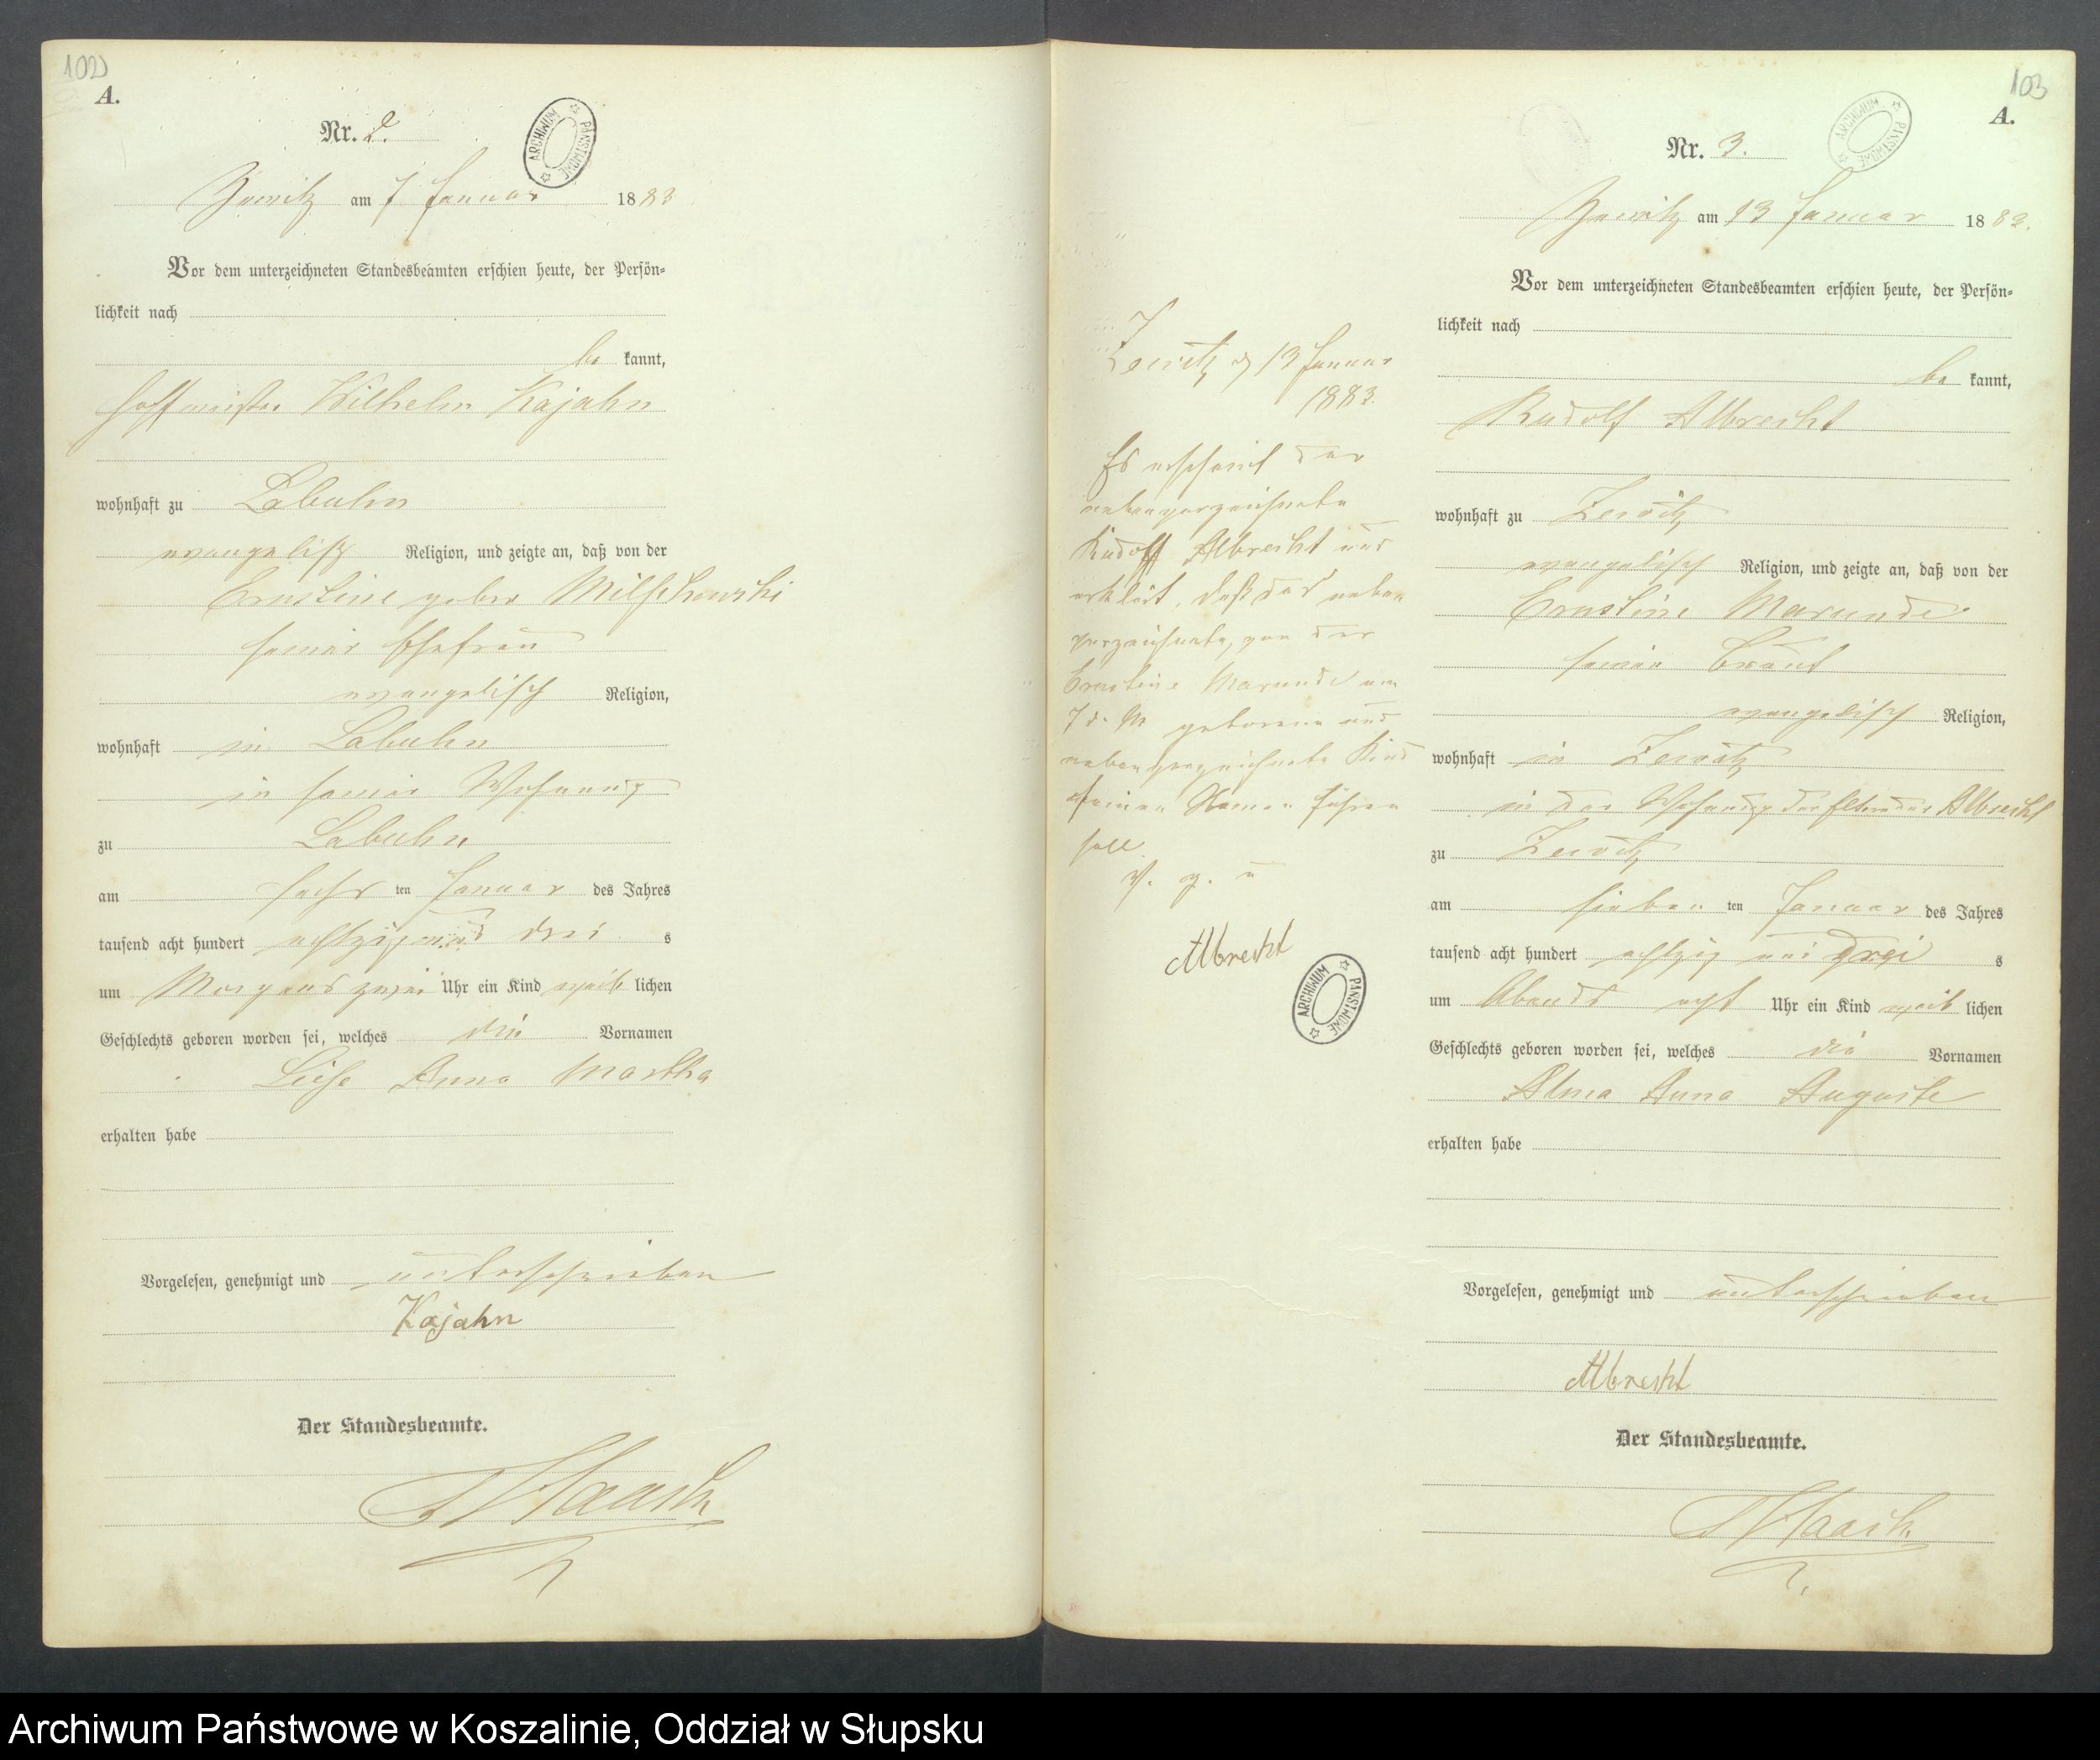 102
A.
Nr. 2.
ARCHIWUM PAŃSTWOWE
Zewitz am 7 Januar 1883
Vor dem unterzeichneten Standesbeamten erschien heute, der Persön-
lichkeit nach
be kannt,
Hoffmeister Wilhelm Kajahn
wohnhaft zu Labuhn
evangelisch Religion, und zeigte an, daß von der
Ernstine geber Milschewski
seiner Ehefrau
evangelisch Religion,
wohnhaft in Labuhn
in seiner Wohnung
zu Labuhn
am sechs ten Januar des Jahres
tausend acht hundert achtzig und drei s
um Morgens zwei Uhr ein Kind weib lichen
Geschlechts geboren worden sei, welches die Vornamen
Liese Anna Martha
erhalten habe
Vorgelesen, genehmigt und unterschrieben
Kajahn
Der Standesbeamte.
103
A.
Nr. 3.
ARCHIWUM PAŃSTWOWE
Zewitz am 13 Januar 1883.
Vor dem unterzeichneten Standesbeamten erschien heute, der Persön-
lichkeit nach
be kannt,
Rudolf Albrecht
wohnhaft zu Zewitz
evangelisch Religion, und zeigte an, daß von der
Ernstine Marunde
seiner Braut
evangelisch Religion,
wohnhaft in Zewitz
in der Wohnung der Eltern der Albrecht
zu Zewitz
am sieben ten Januar des Jahres
tausend acht hundert achtzig und drei s
um Abends acht Uhr ein Kind weib lichen
Geschlechts geboren worden sei, welches die Vornamen
Alma Anna Auguste
erhalten habe
Vorgelesen, genehmigt und unterschrieben
Albrecht
Der Standesbeamte.
Zewitz d 13 Januar
1883.
Es erscheint der
nebenverzeichnete
Rudolf Albrecht und
erklärt, daß das neben
verzeichnete, von der
Ernstine Marunde am
7 d. M geborene und
nebenverzeichnete Kind
seinen Namen führen
soll.
v. g. u
Albrecht
ARCHIWUM PAŃSTWOWE
Archiwum Państwowe w Koszalinie, Oddział w Słupsku